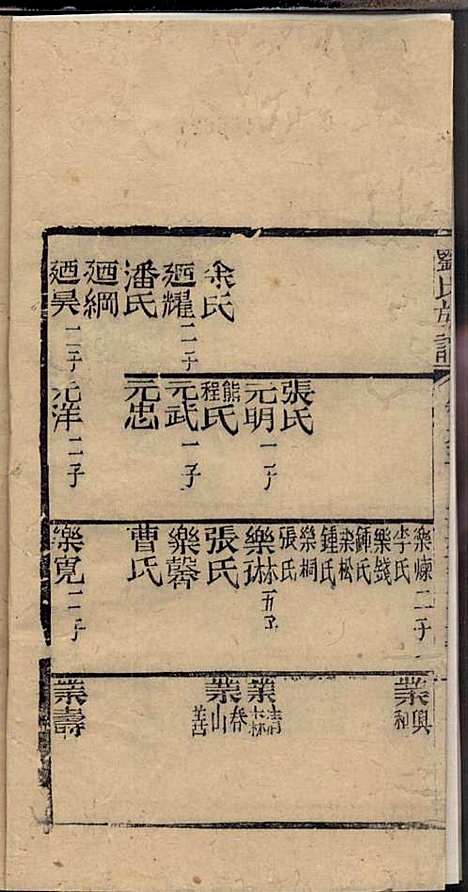 劉氏族譜
余氏
廼耀二子
潘氏
廼綱
廼昊二子
張氏
元明一子
熊程氏
元武一子
元忠
元洋二子
樂㷂二子
李氏
樂錢
鍾氏
樂松
鍾氏
樂桐
張氏
樂琳五子
張氏
樂馨
曹氏
樂寬二子
業興和
業清森
業春山善
業壽